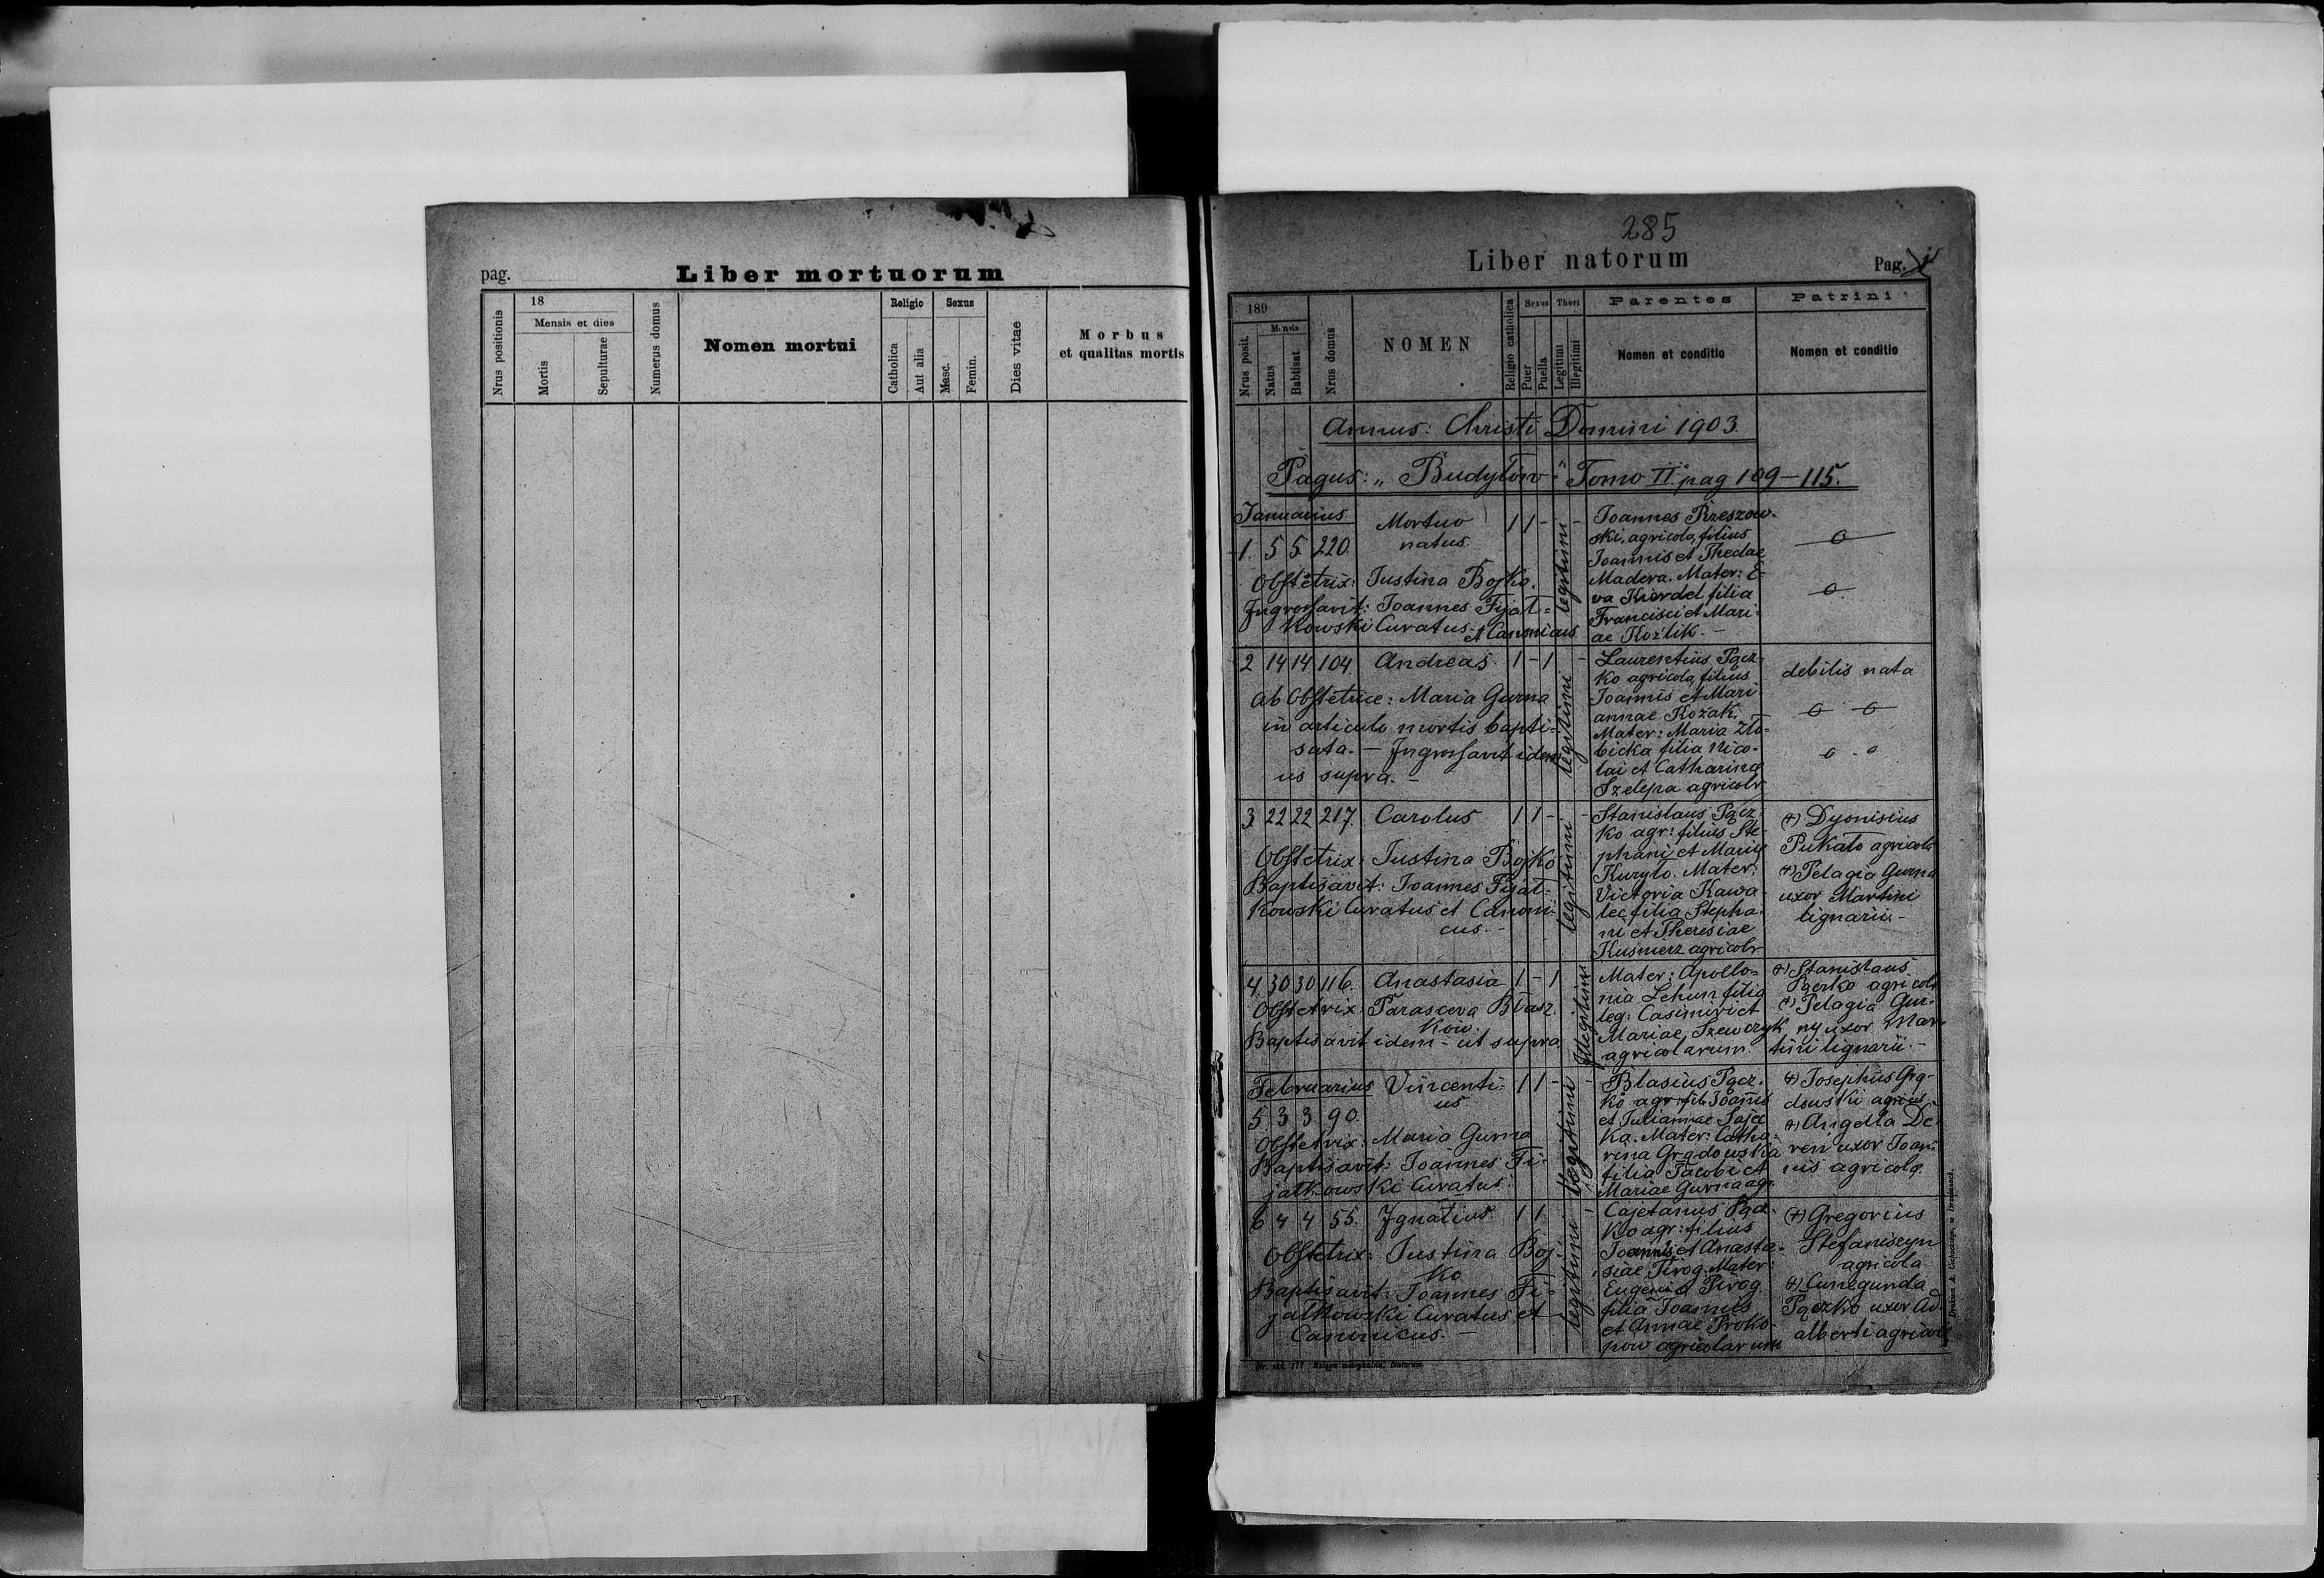 pag.
Liber mortuorum
Nrus positionis
18
Mensis et dies
Mortis
Sepulturae
Numerus domus
Nomen mortui
Religio
Catholica
Aut alia
Sexus
Masc.
Femin.
Dies vitae
Morbus
et qualitas mortis
285
Liber natorum
Pag.
189
Nrus posit.
Mensis
Natus
Babtisat.
Nrus domus
NOMEN
Religio catholica
Sexus
Puer
Puella
Thori
Legitimi
Illegitimi
Parentes
Nomen et conditio
Patrini
Nomen et conditio
Annus: Christi Domini 1903.
Pagus: „Budyłow" Tomo II. pag 109-115.
Januarius
1. 5 5. 220.
Mortuo
natus.
1 1 - -
legitimi
Obstetrix: Justina Bojko.
Ingrossavit: Joannes Fijał=
kowski Curatus et Canonicus.
Joannes Rzeszow-
ski, agricola, filius
Joannis et Theclae
Madera. Mater: E-
va Kierdel filia
Francisci et Mari-
ae Koźlik. -
2 14 14 104 Andreas. 1 - 1 -
legitimi
ab Obstetrice: Maria Gurna
in articulo mortis bapti=
sata. - Ingrossavit idem
us supra. -
Laurentius Pącz-
ko agricola, filius
Joannis et Mari
annae Kozak. -
Mater: Maria Zło-
bicka filia Nico-
lai et Catharinae
Szelepa agricolr
debilis nata
3 22 22 217. Carolus 1 1 - -
legitimi
Obstetrix: Justina Bojko
Baptisavit: Joannes Fijał=
kowski Curatus et Canoni=
cus. -
Stanislaus Pącz-
ko agr: filius Ste-
phani et Mariae
Kuryło. Mater:
Victoria Kawa-
lec filia Stepha-
ni et Theresiae
Kuśnierz agricolr
(+) Dyonisius
Pukało agricola
(+) Pelagia Gurna
uxor Martini
lignarii. -
4. 30 30 116. Anastasia 1 - 1
Illegitimi
Obstetrix: Parasceva Błasz
kow.
Baptisavit idem - ut supra.
Mater: Apollo=
nia Lehun filia
leg: Casimiri et
Mariae Szewczyk
agricolarum.
(+) Stanislaus
Pączko agricola
(+) Pelagia Gur-
ny uxor Mar-
tini lignarii. -
Februarius
Vincenti=
us.
1 1 - -
legitimi
5. 3 3 90
Obstetrix: Maria Gurna
Baptisavit: Joannes Fi-
jałkowski Curatus.
Blasius Pącz-
ko agr: fil: Joannis
et Juliannae Saje
ka. Mater: Catha-
rina Grądowska
filia Jacobi et
Mariae Gurna agr.
(+) Josephus Grą-
dowski agricol
(+) Angela De-
ren uxor Joan
nis agricola.
6 4 4 55. Ignatius. 1 1
legitimi
Obstetrix: Justina Boj-
ko
Baptisavit: Joannes Fi-
jałkowski Curatus et
Canonicus. -
Cajetanus Pącz-
ko agr: filius
Joannis et Anasta-
siae Pirog. Mater:
Eugenia Pirog
filia Joannis
et Annae Proko-
pow agricolarum
(+) Gregorius
Stefaniszyn
agricola
(+) Cunegunda
Pączko uxor Ad-
alberti agricola
Nr. skł. 177 Księga metrykalna, Natorum.